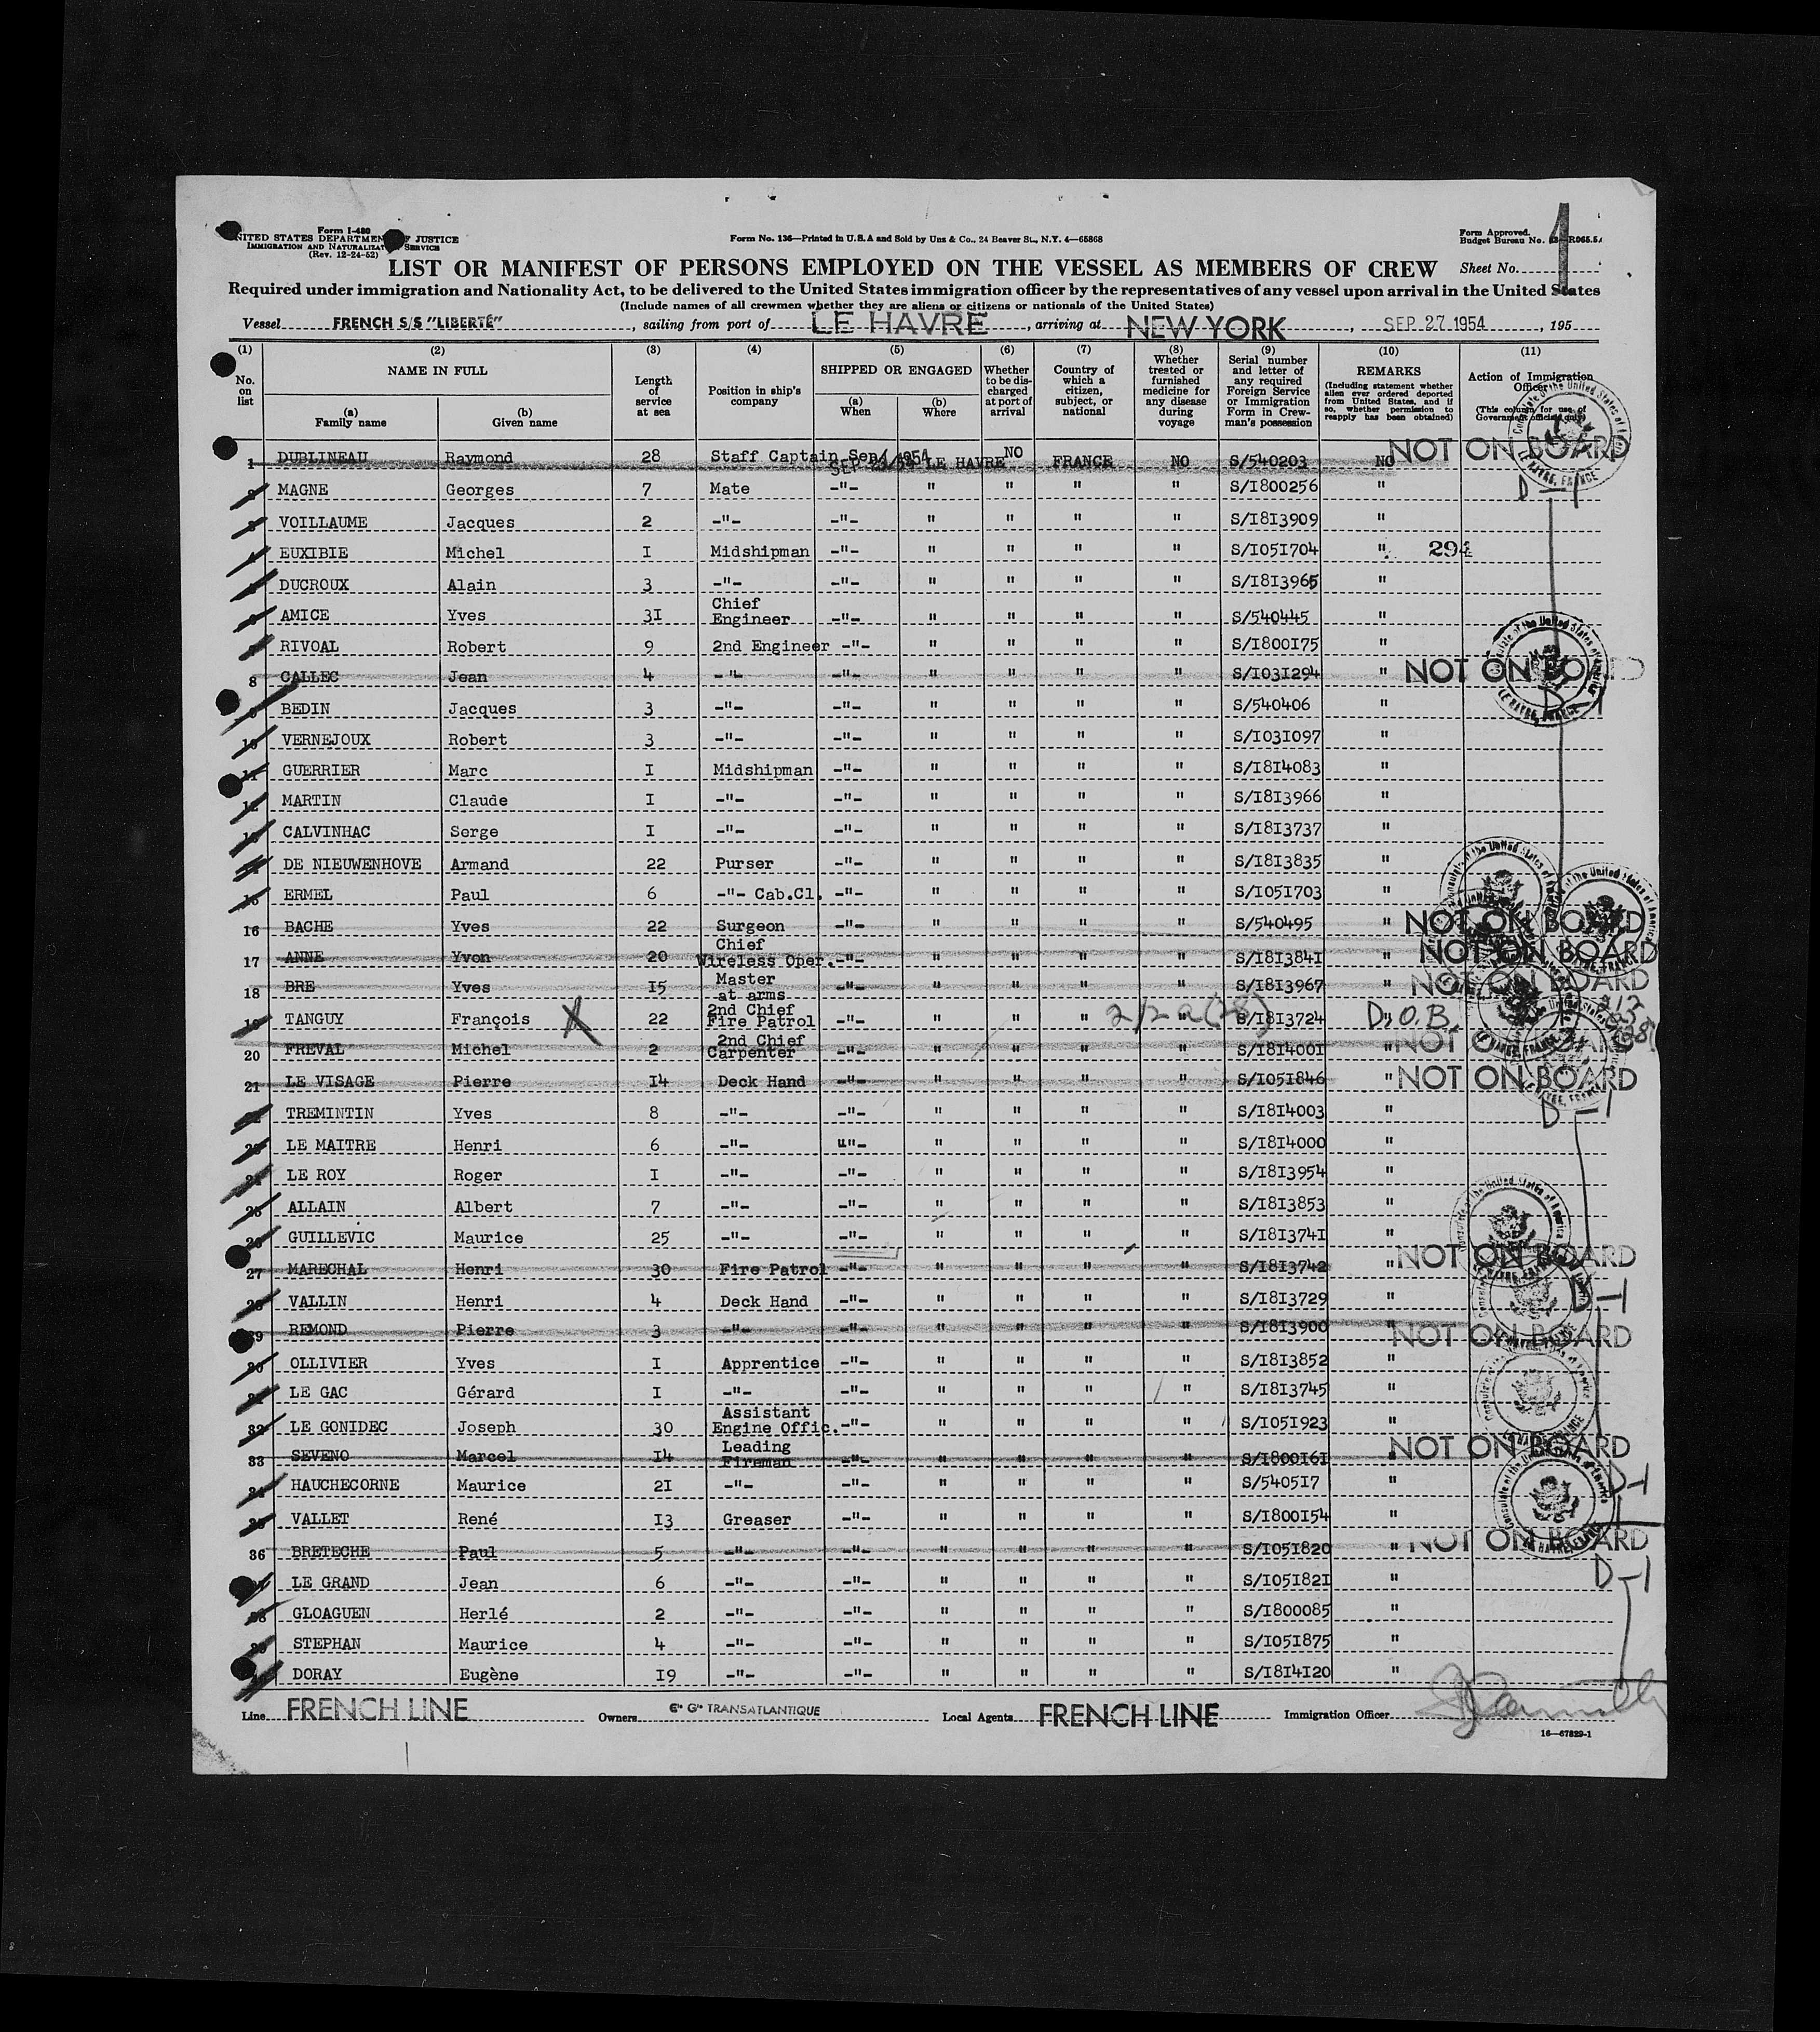 Form I-480
UNITED STATES DEPARTMENT OF JUSTICE
IMMIGRATION AND NATURALIZATION SERVICE
(Rev. 12-24-52)
Form No. 136—Printed in U.S.A and Sold by Unz & Co., 24 Beaver St., N.Y. 4—65868
Form Approved.
Budget Bureau No.
LIST OR MANIFEST OF PERSONS EMPLOYED ON THE VESSEL AS MEMBERS OF CREW
Sheet No. 1
Required under immigration and Nationality Act, to be delivered to the United States immigration officer by the representatives of any vessel upon arrival in the United States
(Include names of all crewmen whether they are aliens or citizens or nationals of the United States)
Vessel FRENCH S/S "LIBERTÉ", sailing from port of LE HAVRE, arriving at NEW YORK, SEP 27 1954, 195
(1) No. on list
(2) NAME IN FULL (a) Family name (b) Given name
(3) Length of service at sea
(4) Position in ship's company
(5) SHIPPED OR ENGAGED (a) When (b) Where
(6) Whether to be discharged at port of arrival
(7) Country of which a citizen, subject, or national
(8) Whether treated or furnished medicine for any disease during voyage
(9) Serial number and letter of any required Foreign Service or Immigration Form in Crewman's possession
(10) REMARKS (Including statement whether alien ever ordered deported from United States, and if so, whether permission to reapply has been obtained)
(11) Action of Immigration Officer (This column for use of Government officials only)
1 DUBLINEAU Raymond 28 Staff Captain Sep/ 1954 LE HAVRE NO FRANCE NO S/540203 NO NOT ON BOARD
2 MAGNE Georges 7 Mate -"- " " " " S/I800256 " D-1
3 VOILLAUME Jacques 2 -"- -"- " " " " S/I8I3909 "
4 EUXIBIE Michel I Midshipman -"- " " " " S/I05I704 " 294
5 DUCROUX Alain 3 -"- -"- " " " " S/I8I3965 "
6 AMICE Yves 3I Chief Engineer -"- " " " " S/540445 "
7 RIVOAL Robert 9 2nd Engineer -"- " " " " S/I800I75 "
8 CALLEC Jean 4 -"- -"- " " " " S/I03I294 " NOT ON BOARD
9 BEDIN Jacques 3 -"- -"- " " " " S/540406 " D-1
10 VERNEJOUX Robert 3 -"- -"- " " " " S/I03I097 "
11 GUERRIER Marc I Midshipman -"- " " " " S/I8I4083 "
12 MARTIN Claude I -"- -"- " " " " S/I8I3966 "
13 CALVINHAC Serge I -"- -"- " " " " S/I8I3737 "
14 DE NIEUWENHOVE Armand 22 Purser -"- " " " " S/I8I3835 "
15 ERMEL Paul 6 -"- Cab.Cl. -"- " " " " S/I05I703 "
16 BACHE Yves 22 Surgeon -"- " " " " S/540495 " NOT ON BOARD
17 ANNE Yvon 20 Chief Wireless Oper. -"- " " " " S/I8I384I " NOT ON BOARD
18 BRE Yves I5 Master at arms -"- " " " " S/I8I3967 " NOT ON BOARD
19 TANGUY François X 22 2nd Chief Fire Patrol -"- " " " " S/I8I3724 D.O.B.
20 FREVAL Michel 2 2nd Chief Carpenter -"- " " " " S/I8I400I " NOT ON BOARD
21 LE VISAGE Pierre I4 Deck Hand -"- " " " " S/I05I846 " NOT ON BOARD
22 TREMINTIN Yves 8 -"- -"- " " " " S/I8I4003 " D-1
23 LE MAITRE Henri 6 -"- -"- " " " " S/I8I4000 "
24 LE ROY Roger I -"- -"- " " " " S/I8I3954 "
25 ALLAIN Albert 7 -"- -"- " " " " S/I8I3853 "
26 GUILLEVIC Maurice 25 -"- -"- " " " " S/I8I374I "
27 MARECHAL Henri 30 Fire Patrol -"- " " " " S/I8I3742 " NOT ON BOARD
28 VALLIN Henri 4 Deck Hand -"- " " " " S/I8I3729 " D-1
29 REMOND Pierre 3 -"- -"- " " " " S/I8I3900 " NOT ON BOARD
30 OLLIVIER Yves I Apprentice -"- " " " " S/I8I3852 "
31 LE GAC Gérard I -"- -"- " " " " S/I8I3745 "
32 LE GONIDEC Joseph 30 Assistant Engine Offic. -"- " " " " S/I05I923 "
33 SEVENO Marcel I4 Leading Fireman -"- " " " " S/I800I6I " NOT ON BOARD
34 HAUCHECORNE Maurice 2I -"- -"- " " " " S/5405I7 " D-1
35 VALLET René I3 Greaser -"- " " " " S/I800I54 "
36 BRETECHE Paul 5 -"- -"- " " " " S/I05I820 " NOT ON BOARD
37 LE GRAND Jean 6 -"- -"- " " " " S/I05I82I " D-1
38 GLOAGUEN Herlé 2 -"- -"- " " " " S/I800085 "
39 STEPHAN Maurice 4 -"- -"- " " " " S/I05I875 "
40 DORAY Eugène I9 -"- -"- " " " " S/I8I4I20 "
Line FRENCH LINE Owners Cie Gle TRANSATLANTIQUE Local Agents FRENCH LINE Immigration Officer
16—67829-1